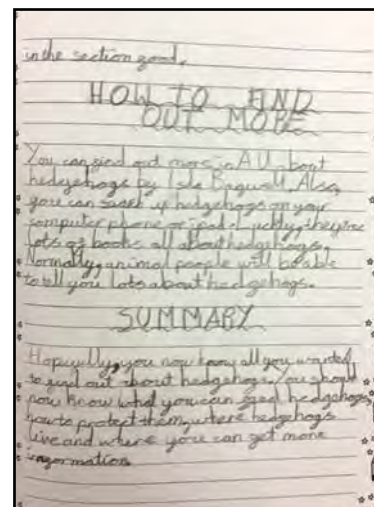 in the section food.
HOW TO FIND
OUT MORE
You can find out more in All about
hedgehogs by Isla Bagwell. Also,
you can search up hedgehogs on your
computer phone or ipad. Luckily, they're
lots of books all about hedgehogs.
Normally, animal people will be able
to tell you lots about hedgehogs.
SUMMARY
Hopefully, you now know all you wanted
to find out about hedgehogs. You should
now know what you can feed hedgehogs,
how to protect them, where hedgehogs
live and where you can get more
information